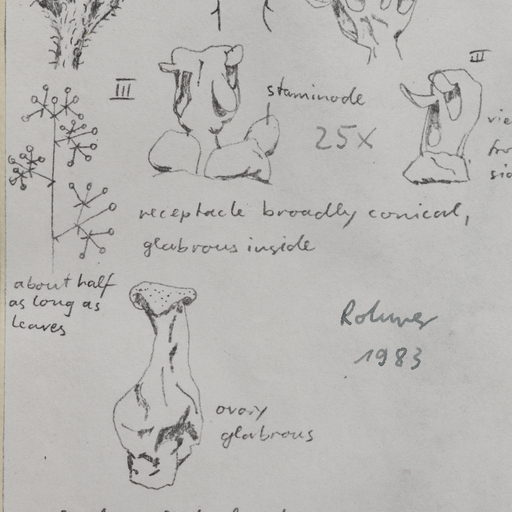 III
III
staminode
25x
receptacle broadly conical,
glabrous inside
about half
as long as
leaves
Rohwer
1983
ovary
glabrous